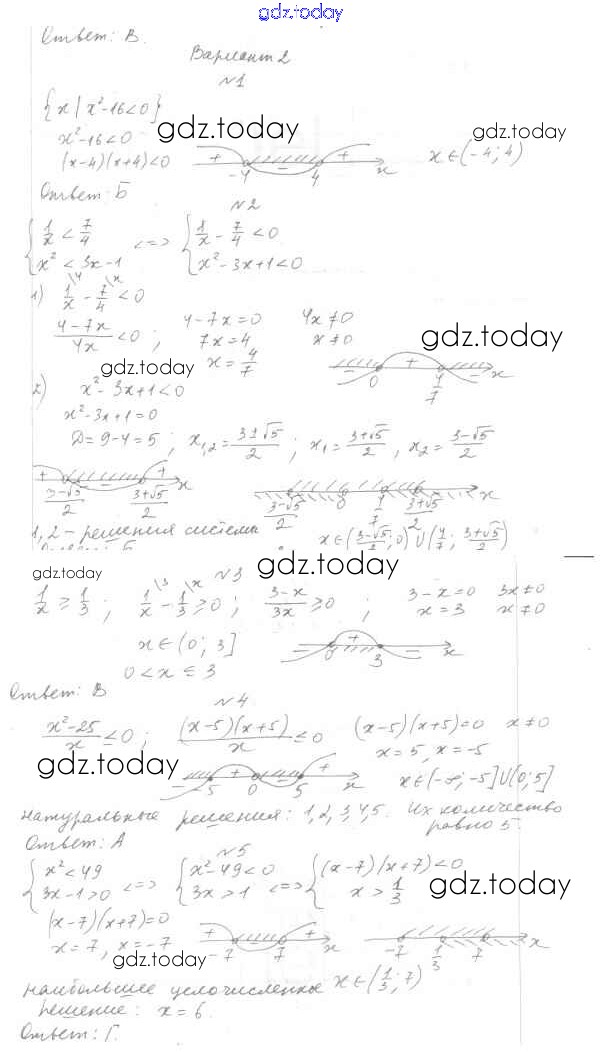 gdz.today
Ответ: В.
Вариант 2
№1
{x | x²-16<0}
x²-16<0
gdz.today
gdz.today
(x-4)(x+4)<0
+ -4 - 4 + x
x∈(-4; 4)
Ответ: Б
№2
{ 1/x < 7/4
x² < 3x-1
<=>
{ 1/x - 7/4 < 0
x²-3x+1<0
1) 1/x - 7/4 < 0
\4 \x
(4-7x)/4x < 0 ; 4-7x=0 4x≠0
7x=4 x≠0
x = 4/7
gdz.today
gdz.today
- 0 + 4/7 - x
2) x²-3x+1<0
x²-3x+1=0
D=9-4=5 ; x₁,₂=(3±√5)/2 ; x₁=(3+√5)/2 , x₂=(3-√5)/2
+ (3-√5)/2 - (3+√5)/2 + x
(3-√5)/2 0 4/7 (3+√5)/2 x
1, 2 - решения системы
x∈((3-√5)/2; 0)∪(4/7; (3+√5)/2)
gdz.today
№3
gdz.today
1/x ≥ 1/3 ; 1/x - 1/3 ≥ 0 ; (3-x)/3x ≥ 0 ; 3-x=0 3x≠0
\3 \x
x=3 x≠0
x∈(0; 3]
- 0 + 3 - x
0<x≤3
Ответ: В
№4
(x²-25)/x ≤ 0 ; (x-5)(x+5)/x ≤ 0 (x-5)(x+5)=0 x≠0
x=5, x=-5
gdz.today
- -5 + 0 - 5 + x
x∈(-∞; -5]∪(0; 5]
натуральные решения: 1,2,3,4,5. Их количество
равно 5.
Ответ: А
№5
{ x²<49
3x-1>0
<=>
{ x²-49<0
3x>1
<=>
{ (x-7)(x+7)<0
x > 1/3
gdz.today
(x-7)(x+7)=0
x=7, x=-7
+ -7 - 7 + x
-7 1/3 7 x
gdz.today
наибольшее целочисленное x∈(1/3; 7)
решение: x=6.
Ответ: Г.